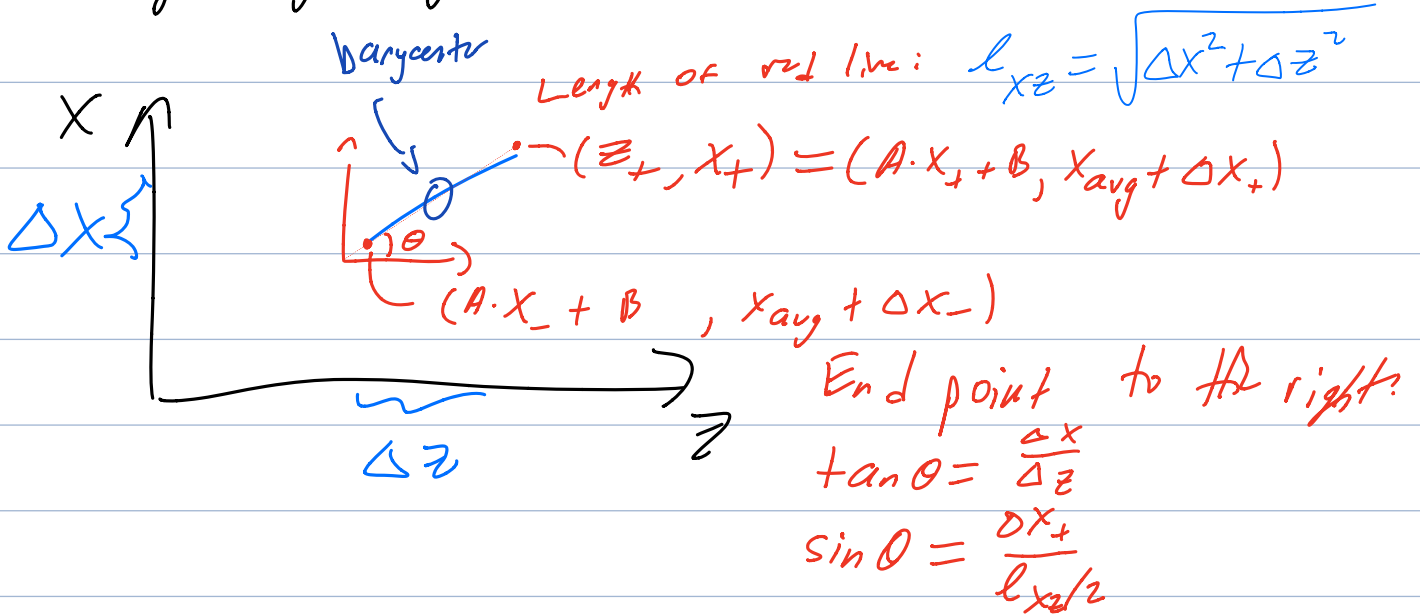 barycenter
Length of red line: l_xz = √(Δx² + Δz²)
X
(Z₊, X₊) = (A·X₊ + B, X_avg + ΔX₊)
ΔX{
θ
(A·X₋ + B, X_avg + ΔX₋)
End point to the right:
z
Δz
tan θ = Δx/Δz
sin θ = ΔX₊/(l_xz/2)